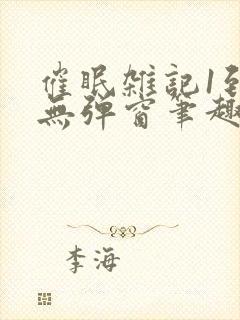 催眠雑記1至
無弹窗筆趣
李海